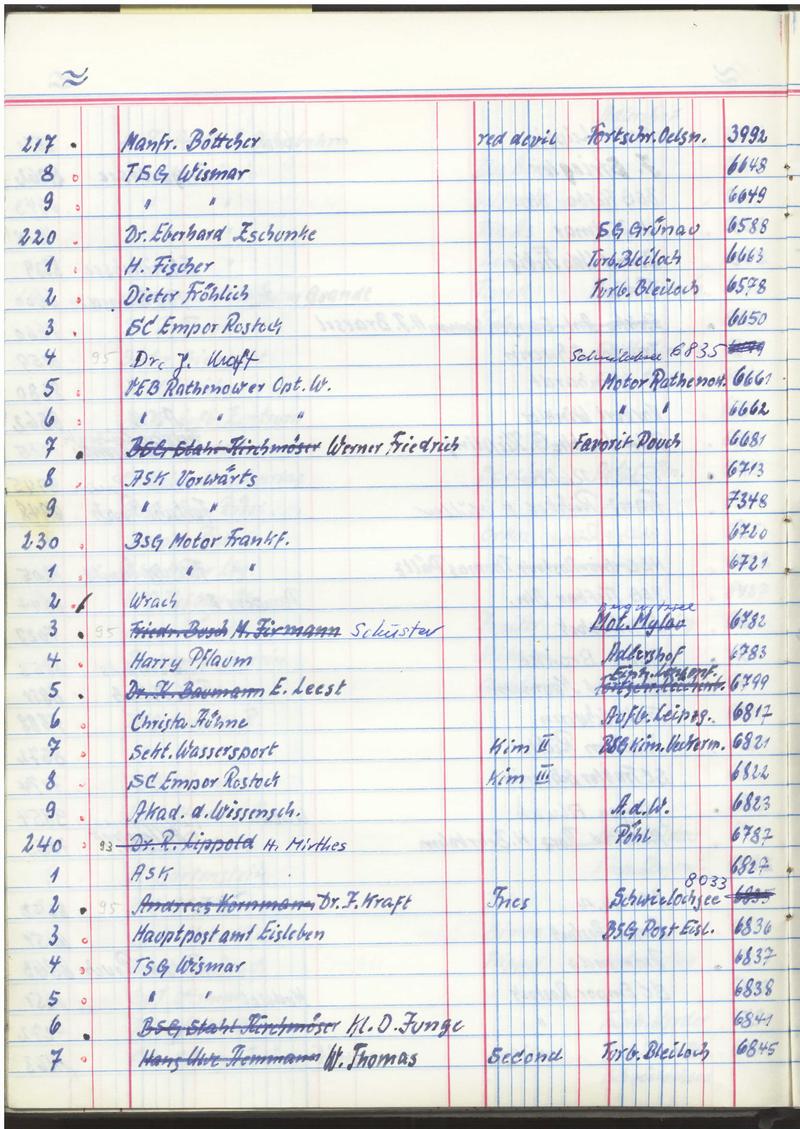 217 Manfr. Böttcher red devil Fortschr. Oelsn. 3992
8 TSG Wismar 6648
9 " " 6649
220 Dr. Eberhard Zschunke SG Grünau 6588
1 H. Fischer Turb. Bleiloch 6663
2 Dieter Fröhlich Turb. Bleiloch 6578
3 SC Empor Rostock 6650
4 95 Dr. J. Kraft 6835
5 VEB Rathenower Opt. W. Motor Rathenow. 6661
6 " " " " " 6662
7 BSG Stahl Kirchmöser Werner Friedrich Favorit Pouch 6681
8 ASK Vorwärts 6713
9 " " 7348
230 BSG Motor Frankf. 6720
1 " " 6721
2 Wrach
3 95 Friedr. Busch M. Firmann Schuster Mot. Mylau 6782
4 Harry Pflaum Adlershof 6783
5 Dr. K. Baumann E. Leest 6799
6 Christa Kühne Aufb. Leipzg. 6817
7 Sekt. Wassersport Kim II BSG Kim. Ueckerm. 6821
8 SC Empor Rostock Kim III 6822
9 Akad. d. Wissensch. A.d.W. 6823
240 93 Dr. R. Lippold H. Mirthes Pöhl 6787
1 ASK 6827
8033
2 95 Andreas Kornmann Dr. J. Kraft Ines Schwielochsee 6835
3 Hauptpostamt Eisleben BSG Post Eisl. 6836
4 TSG Wismar 6837
5 " " 6838
6 BSG Stahl Kirchmöser Kl. D. Junge 6841
7 Hans Uwe W. Thomas Second Turb. Bleiloch 6845